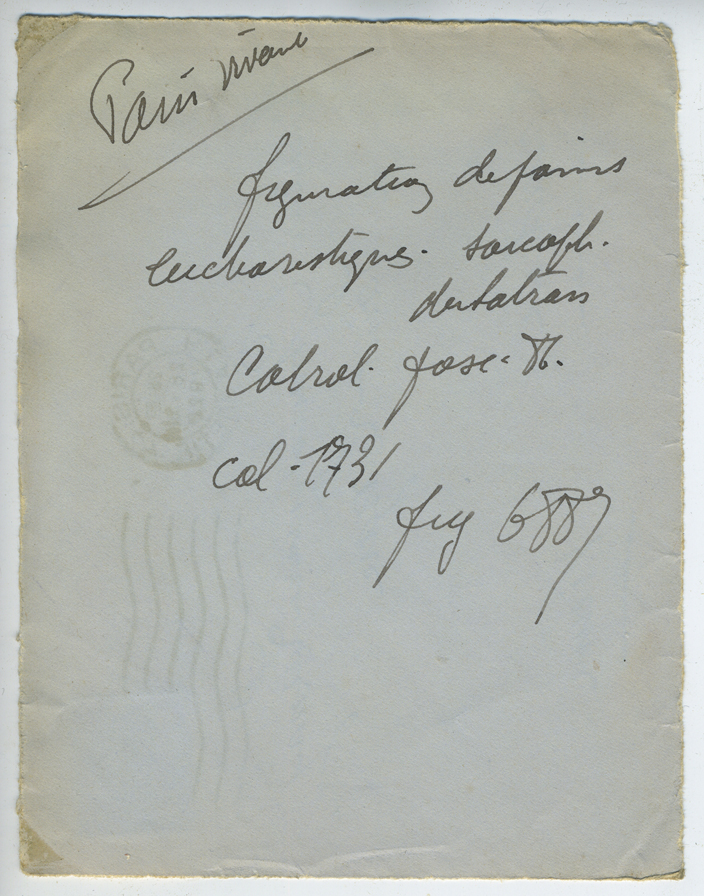 Pain vivant
figuration de pains
eucharistiques. sarcoph.
du Latran
Cabrol. fasc.
col - 1731
fig